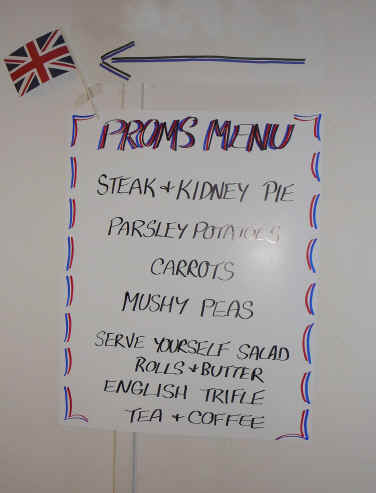 PROMS MENU
STEAK & KIDNEY PIE
PARSLEY POTATOES
CARROTS
MUSHY PEAS
SERVE YOURSELF SALAD
ROLLS & BUTTER
ENGLISH TRIFLE
TEA & COFFEE